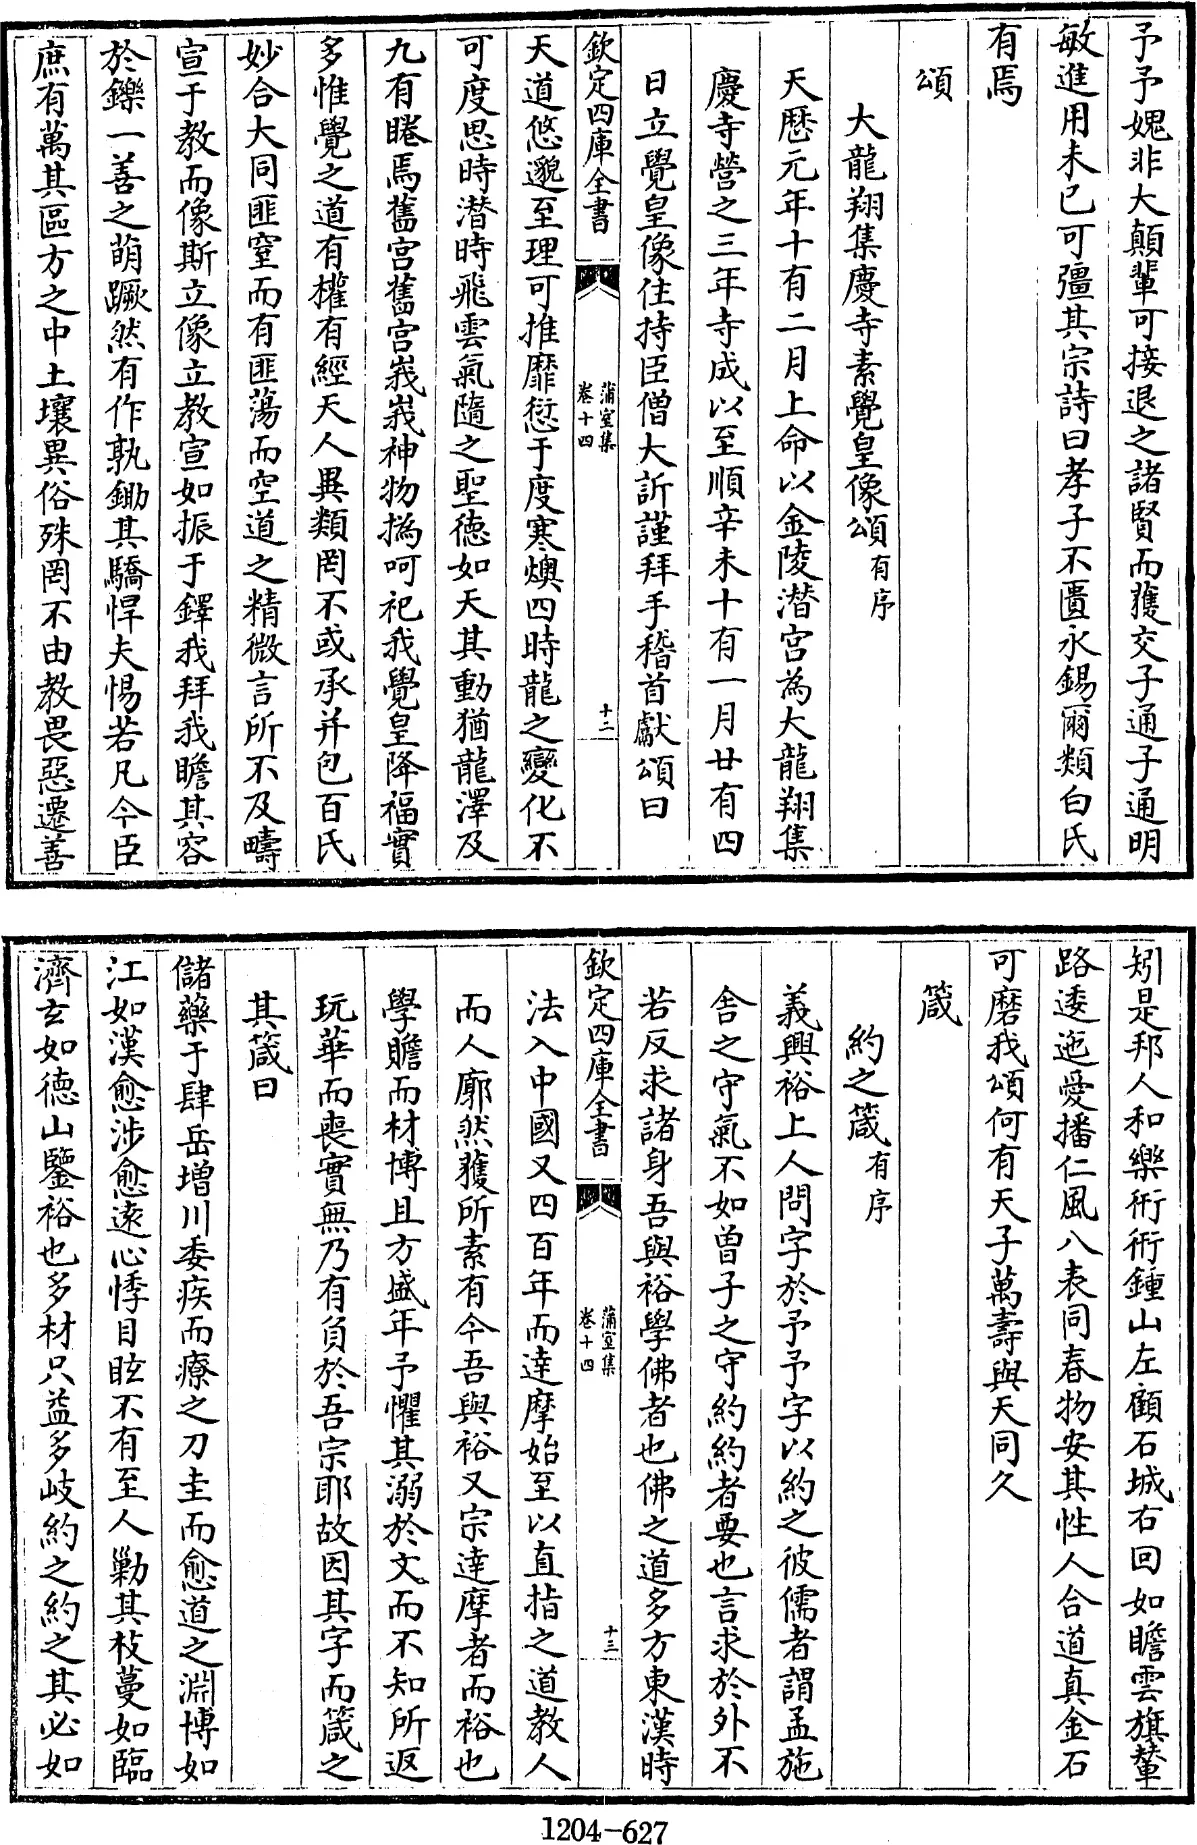 予予媿非大顛輩可接退之諸賢而獲交子通子通明
敏進用未已可彊其宗詩曰孝子不匱永錫爾類白氏
有焉
頌
大龍翔集慶寺素覺皇像頌有序
天厯元年十有二月上命以金陵潛宮為大龍翔集
慶寺營之三年寺成以至順辛未十有一月廿有四
日立覺皇像住持臣僧大訢謹拜手稽首獻頌曰
欽定四庫全書
蒲室集
卷十四
十二
天道悠邈至理可推靡愆于度寒燠四時龍之變化不
可度思時潛時飛雲氣隨之聖德如天其動猶龍澤及
九有睠焉舊宮舊宮峩峩神物撝呵祀我覺皇降福實
多惟覺之道有權有經天人異類罔不或承并包百氏
妙合大同匪窒而有匪蕩而空道之精微言所不及疇
宣于教而像斯立像立教宣如振于鐸我拜我瞻其容
於鑠一善之萌蹶然有作孰鋤其驕悍夫惕若凡今臣
庶有萬其區方之中土壤異俗殊罔不由教畏惡遷善
矧是邦人和樂衎衎鍾山左顧石城右回如瞻雲旗輦
路逶迤愛播仁風八表同春物安其性人合道真金石
可磨我頌何有天子萬壽與天同久
箴
約之箴有序
義興裕上人問字於予予字以約之彼儒者謂孟施
舍之守氣不如曾子之守約約者要也言求於外不
若反求諸身吾與裕學佛者也佛之道多方東漢時
欽定四庫全書
蒲室集
卷十四
十三
法入中國又四百年而達摩始至以直指之道教人
而人廓然獲所素有今吾與裕又宗達摩者而裕也
學贍而材博且方盛年予懼其溺於文而不知所返
玩華而喪實無乃有負於吾宗耶故因其字而箴之
其箴曰
儲藥于肆岳增川委疾而療之刀圭而愈道之淵博如
江如漢愈涉愈遠心悸目眩不有至人勦其枝蔓如臨
濟玄如德山鑒裕也多材只益多岐約之約之其必如
1204-627